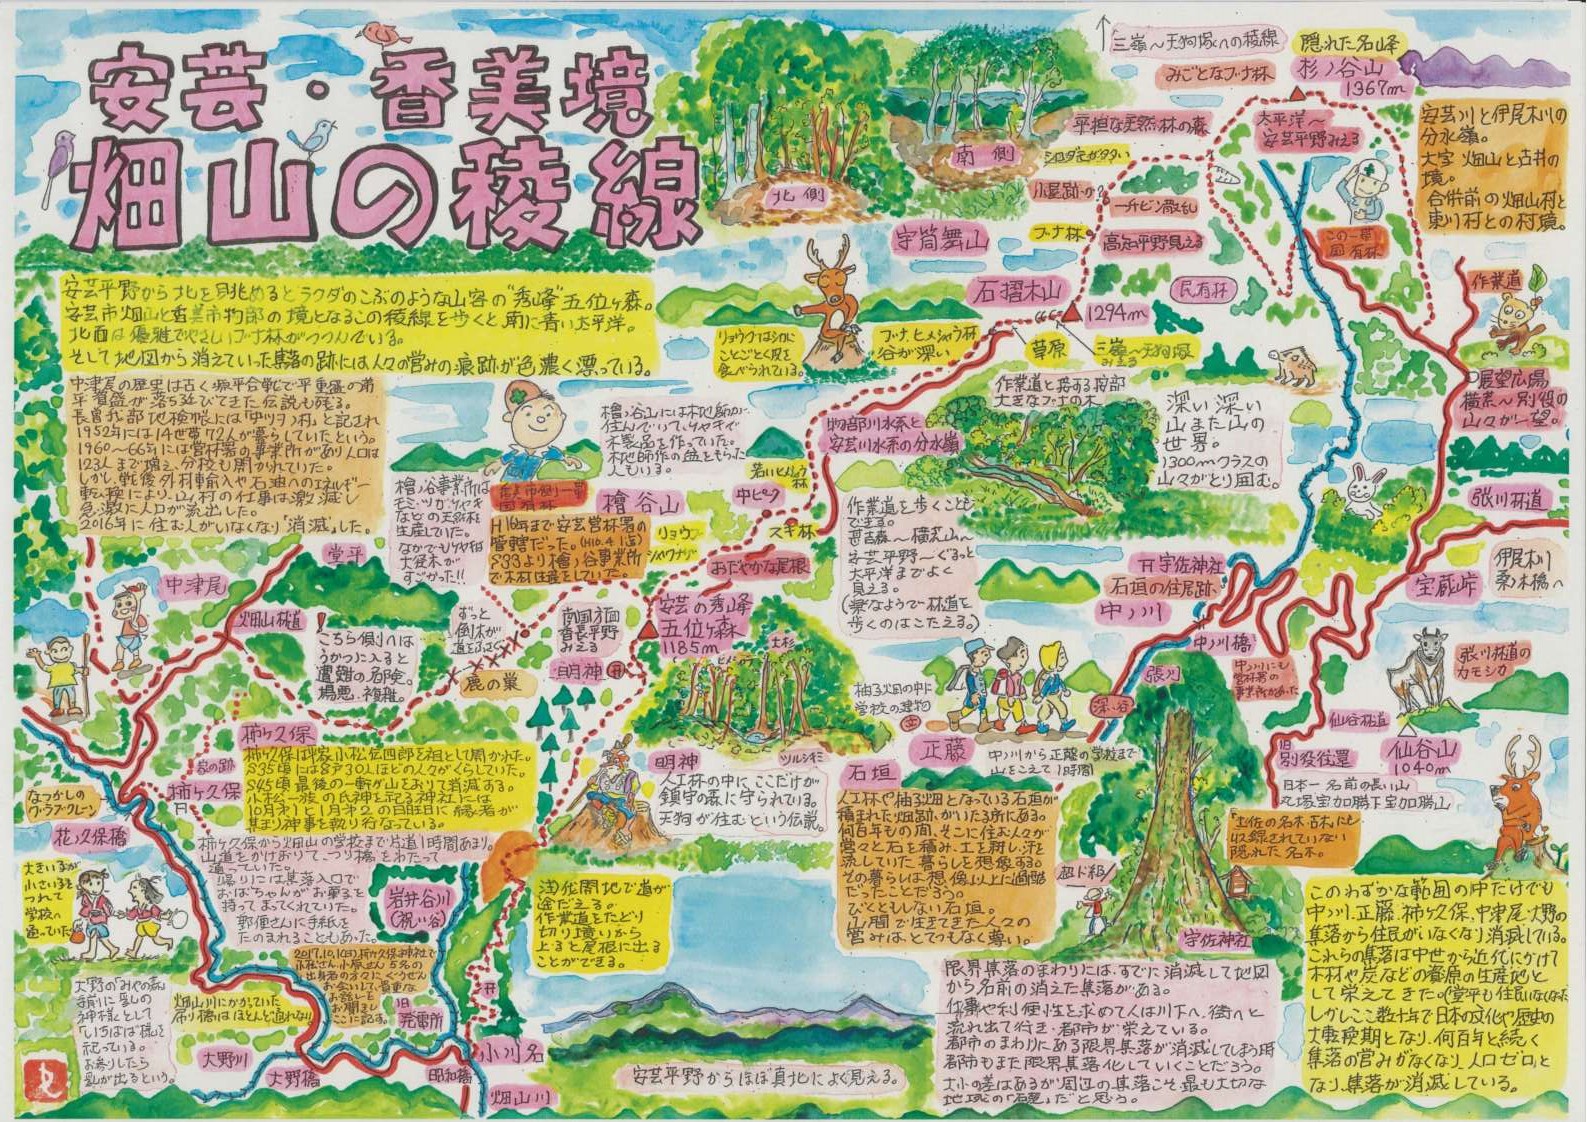 安芸・香美境
畑山の稜線
安芸平野から北を眺めるとラクダのこぶのような山容の"秀峰"五位ヶ森。
安芸市畑山と香美市物部の境となるこの稜線を歩くと南に青い太平洋。
北面は優雅でやさしいブナ林がつつんでいる。
そして地図から消えていった集落の跡には人々の営みの痕跡が色濃く漂っている。
中津尾の歴史は古く源平合戦で平重盛の弟
平 が落ち延びてきた伝説も残る。
長曽我部地検帳には「中ツヲ村」と記され
1952年には14世帯72人が暮らしていたという。
1960〜66年には営林署の事業所があり人口は
123人まで増え、分校も開かれていた。
しかし、戦後外材輸入や石油へのエネルギー
転換により、山村の仕事は激減し
急激に人口が流出した。
2016年に住む人がいなくなり「消滅」した。
北側
南側
↑三嶺〜天狗塚への稜線
みごとなブナ林
隠れた名峰
杉ノ谷山
1367m
平担な天然林の森
太平洋〜
安芸平野みえる
シロダモがタタい
小屋跡か?
一升ビン散乱
ブナ林
高知平野見える
宇筒舞山
石摺木山
1294m
民有林
この一里
国有林
安芸川と伊尾木川の
分水嶺。
大字 畑山と古井の
境。
合併前の畑山村と
東川村との村境。
作業道
展望広場
横荒〜別役の
山々が一望。
張川林道
伊尾木川
栗ノ木橋へ
宝蔵峠
リョウブはシカに
ことごとく皮を
食べられている。
ブナ、ヒメシャラ林
谷が深い
草原
三嶺〜天狗塚
みえる
作業道と接する鞍部
大きなブナの木
物部川水系と
安芸川水系の分水嶺
深い深い
山また山の
世界。
1300mクラスの
山々がとり囲む。
作業道を歩くことも
できる。
甚吉森〜横荒山〜
安芸平野〜ぐるっと
太平洋までよく
見える。
(楽なようで林道を
歩くのはこたえる。)
檜ノ谷山には木地師が
住んでいて、ケヤキで
木製品を作っていた。
木地師作の盆をもらった
人もいる。
檜ノ谷事業所は
モミ・ツガ・ケヤキ
などの天然林を
生産していた。
なかでもケヤキは
大径木が
すごかった!!
香美市側一里
国有林
H16年まで安芸営林署の
管轄だった。(H16.4 1迄)
S33より檜ノ谷事業所
で木材生産をしていた。
檜谷山
若いヒメシャラ林
中ピーク
スギ林
リョウブ
シャクナゲ
おだやかな尾根
中津尾
堂平
畑山林道
こちら側へは
うかつに入ると
遭難の危険。
場悪・複雑。
ずっと
倒木が
道をふさぐ
鹿の巣
南国方面
香長平野
みえる
明神
安芸の秀峰
五位ヶ森
1185m
大杉
ツルシキミ
明神
人工林の中に、ここだけが
鎮守の森に守られている。
天狗が住むという伝説。
宇佐神社
石垣の住居跡
中ノ川
中ノ川橋
中ノ川にも
営林署の
事業所があった
張川
深い谷
柚子畑の中に
学校の建物
正藤
中ノ川から正藤の学校まで
山をこえて1時間
張川林道の
カモシカ
仙谷林道
仙谷山
1040m
旧
別役往還
日本一名前の長い山
丸塚宝加勝下宝加勝山
「土佐の名木・古木」にも
収録されていない
隠れた名木。
宇佐神社
石垣
人工林や柚子畑となっている石垣が
積まれた畑跡がいたる所にある。
何百年もの間、そこに住む人々が
営々と石を積み、土を耕し、汗を
流していた暮らしを想像する。
その暮らしは想像以上に過酷
だったことだろう。
びくともしない石垣。
山間で生きてきた人々の
営みはとてつもなく尊い。
柿ヶ久保
柿ヶ久保は平家小松伝四郎を祖として開かれた。
S35頃には8戸30人ほどの人々がくらしていた。
S45頃最後の一軒が山をおりて消滅する。
小松一族の氏神を記る神社には
10月末に1月中の日曜日に縁者が
集まり神事を執り行なっている。
家の跡
柿ヶ久保
なつかしの
グラブクレーン
花ノ久保橋
大きい子が
小さい子を
つれて
学校へ
通っていた
柿ヶ久保から畑山の学校まで片道1時間あまり。
山道をかけおりて、つり橋をわたって
通っていた。
帰りには集落入口で
おばちゃんがお菓子を
持ってまってくれていた。
郵便さんに手紙を
たのまれることもあった。
岩井谷川
(祝い谷)
2017.10.1(日)柿ヶ久保神社で
小松さん、小原さん 5名の
出身者の方々に、ぐうぜん
お会いして、貴重な
お話しを
お聞きし
ここに記す。
旧
発電所
大野の「みやの森」
手前に乳の
神様として
「いちはば様」を
祀っている。
お参りしたら
乳が出るという。
畑山川にかかっていた
吊り橋はほとんど通れない
大野川
大野橋
昭和橋
小川名
畑山川
浅佐開地で道が
途だえる。
作業道をたどり
切り境いから
上ると尾根に出る
ことができる。
安芸平野からほぼ真北によく見える。
限界集落のまわりには、すでに消滅して地図
から名前の消えた集落がある。
仕事や利便性を求めて人は川下へ、街へと
流れ出て行き、都市が栄えている。
都市のまわりにある限界集落が消滅してしまう時
都市もまた限界集落化していくことだろう。
大小の差はあるが周辺の集落こそ、最も大切な
地域の「石垣」だと思う。
このわずかな範囲の中だけでも
中ノ川、正藤、柿ヶ久保、中津尾、大野の
集落から住民がいなくなり消滅している。
これらの集落は中世から近代にかけて
木材や炭などの資源の生産地と
して栄えてきた。(堂平も住民いなくなった)
しかしここ数十年で日本の文化や歴史の
大転換期となり、何百年と続く
集落の営みがなくなり、人口ゼロと
なり、集落が消滅している。